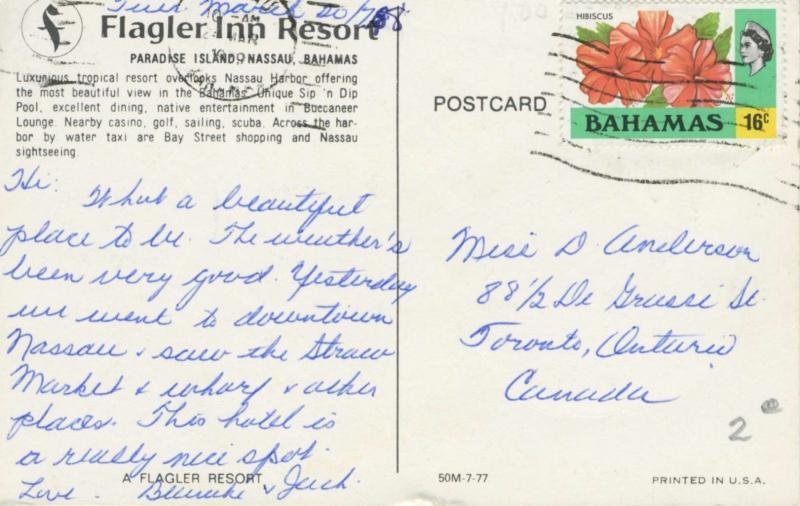 Tues March 20/78
Flagler Inn Resort
PARADISE ISLAND, NASSAU, BAHAMAS
Luxurious tropical resort overlooks Nassau Harbor offering
the most beautiful view in the Bahamas. Unique Sip 'n Dip
Pool, excellent dining, native entertainment in Buccaneer
Lounge. Nearby casino, golf, sailing, scuba. Across the har-
bor by water taxi are Bay Street shopping and Nassau
sightseeing.
Hi:
What a beautiful
place to be. The weather's
been very good. Yesterday
we went to downtown
Nassau & saw the Straw
Market & wharf & other
places. This hotel is
a really nice spot.
Love. Blanche & Jack.
A FLAGLER RESORT
POSTCARD
HIBISCUS
BAHAMAS 16c
Miss D. Anderson
88 1/2 De Grassi St.
Toronto, Ontario
Canada
2
50M-7-77
PRINTED IN U.S.A.